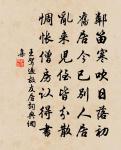 鄰笛寒吹日落初
舊居今已別人居
亂來兒侄皆分散
惆悵僧房認得書
王駕過故友居詞典網
集